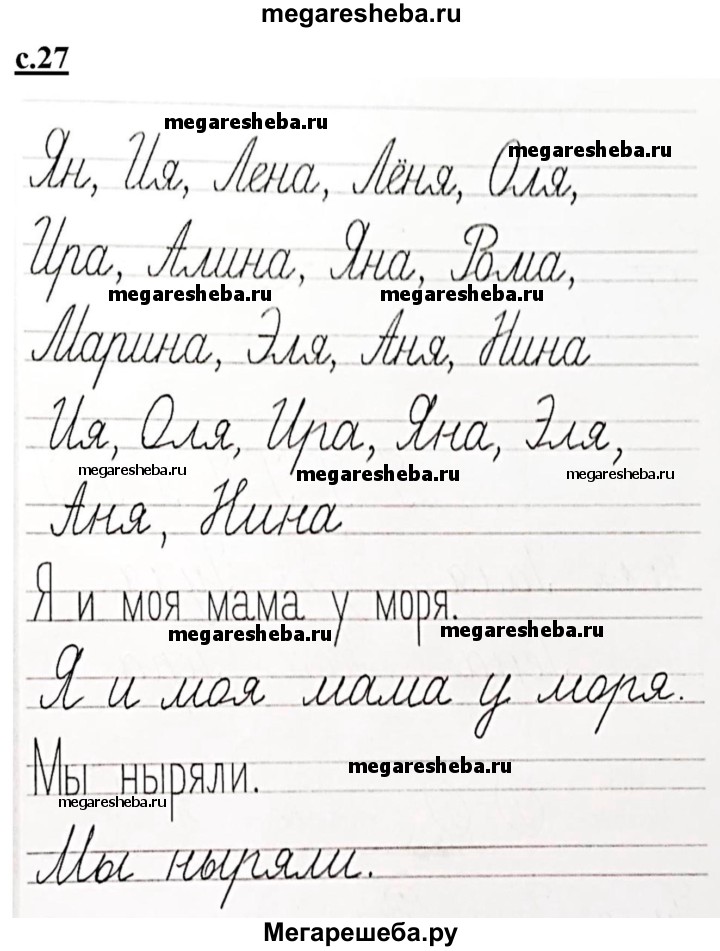 megaresheba.ru
с.27
megaresheba.ru
megaresheba.ru
Ян, Ия, Лена, Лёня, Оля,
Ира, Алина, Яна, Рома,
megaresheba.ru megaresheba.ru
Марина, Эля, Аня, Нина
Ия, Оля, Ира, Яна, Эля,
megaresheba.ru megaresheba.ru megaresheba.ru
Аня, Нина
Я и моя мама у моря.
megaresheba.ru megaresheba.ru
Я и моя мама у моря.
Мы ныряли.
megaresheba.ru
megaresheba.ru
Мы ныряли.
Мегарешеба.ру